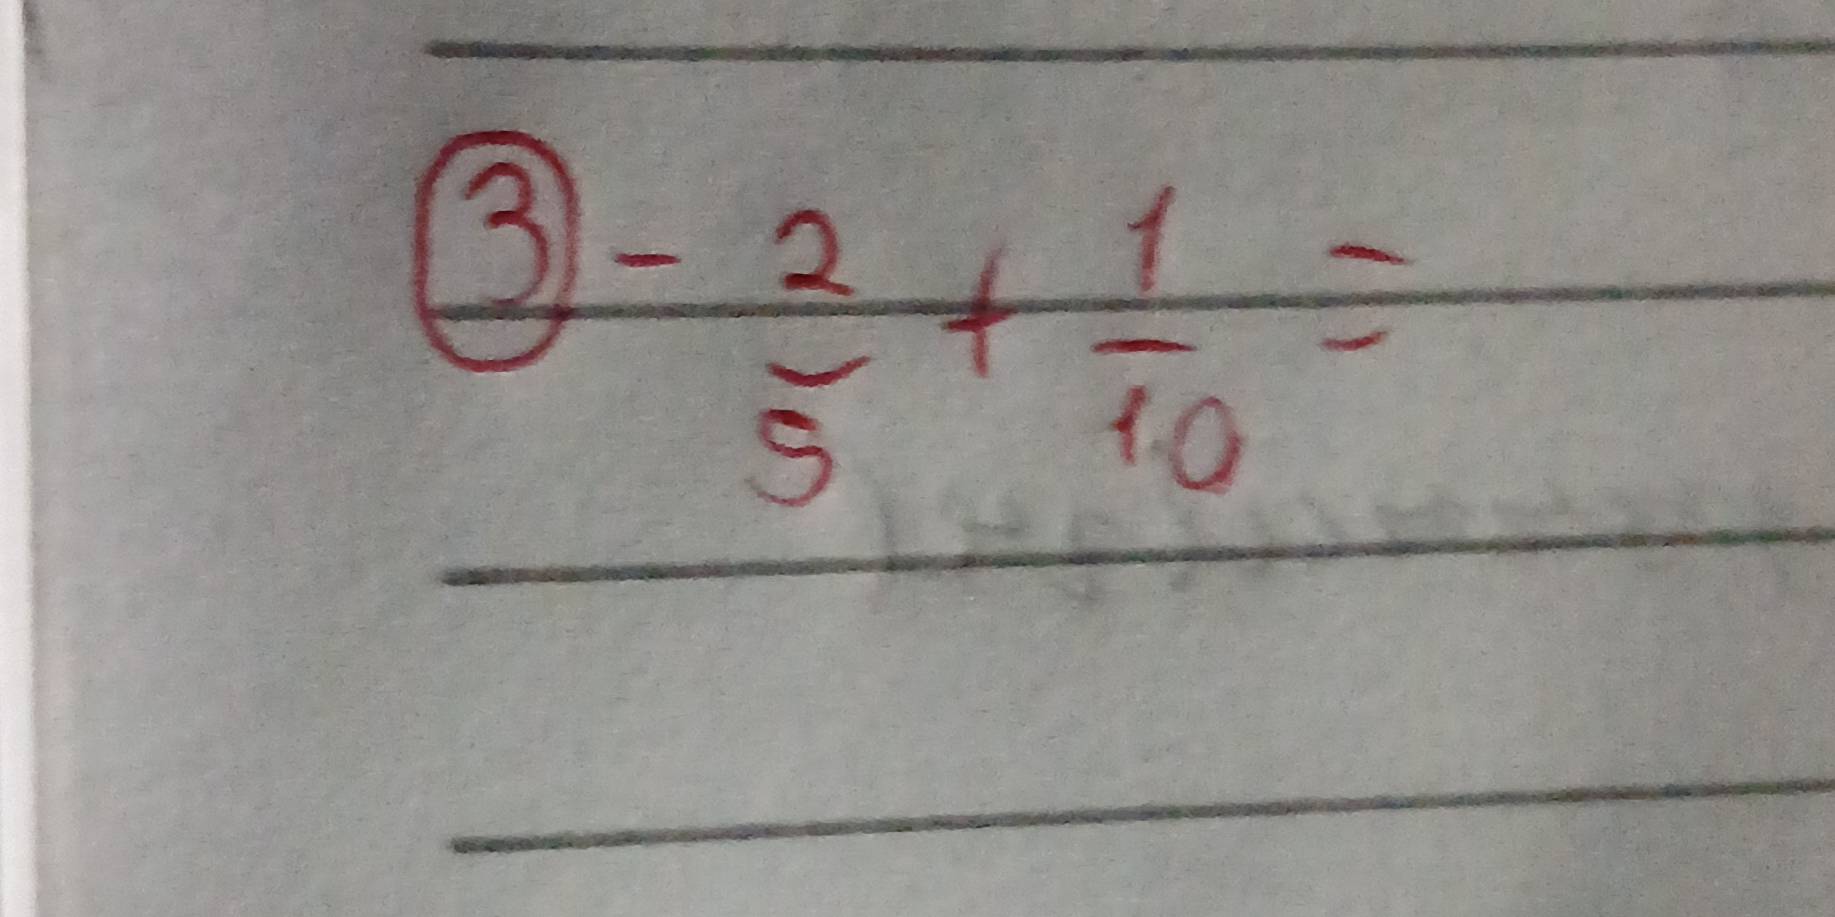 3 - 2/5 + 1/10 =